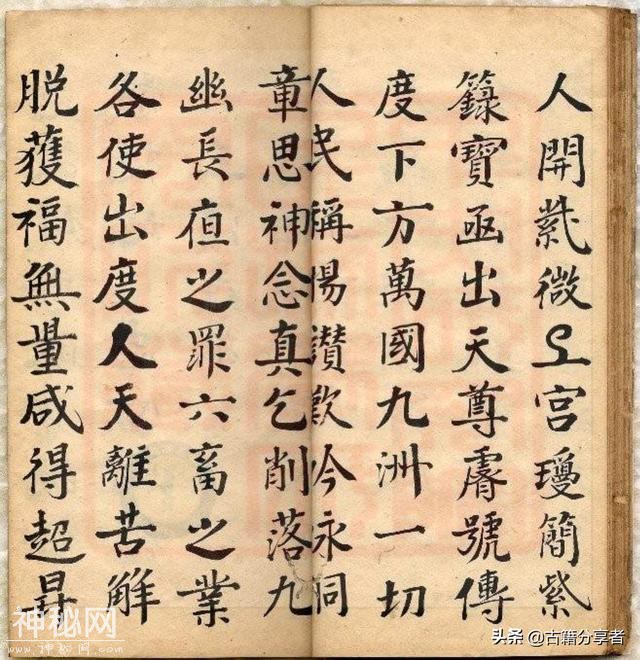 人開紫微上宮瓊簡紫
籙寶函出天尊號傳
度下方萬國九洲一切
人民稱揚讚歎吟永同
章思神念真乞削落九
幽長夜之罪六畜之業
各使出度人天離苦解
脫獲福無量咸得超昇
神秘网
头条 @古籍分享者